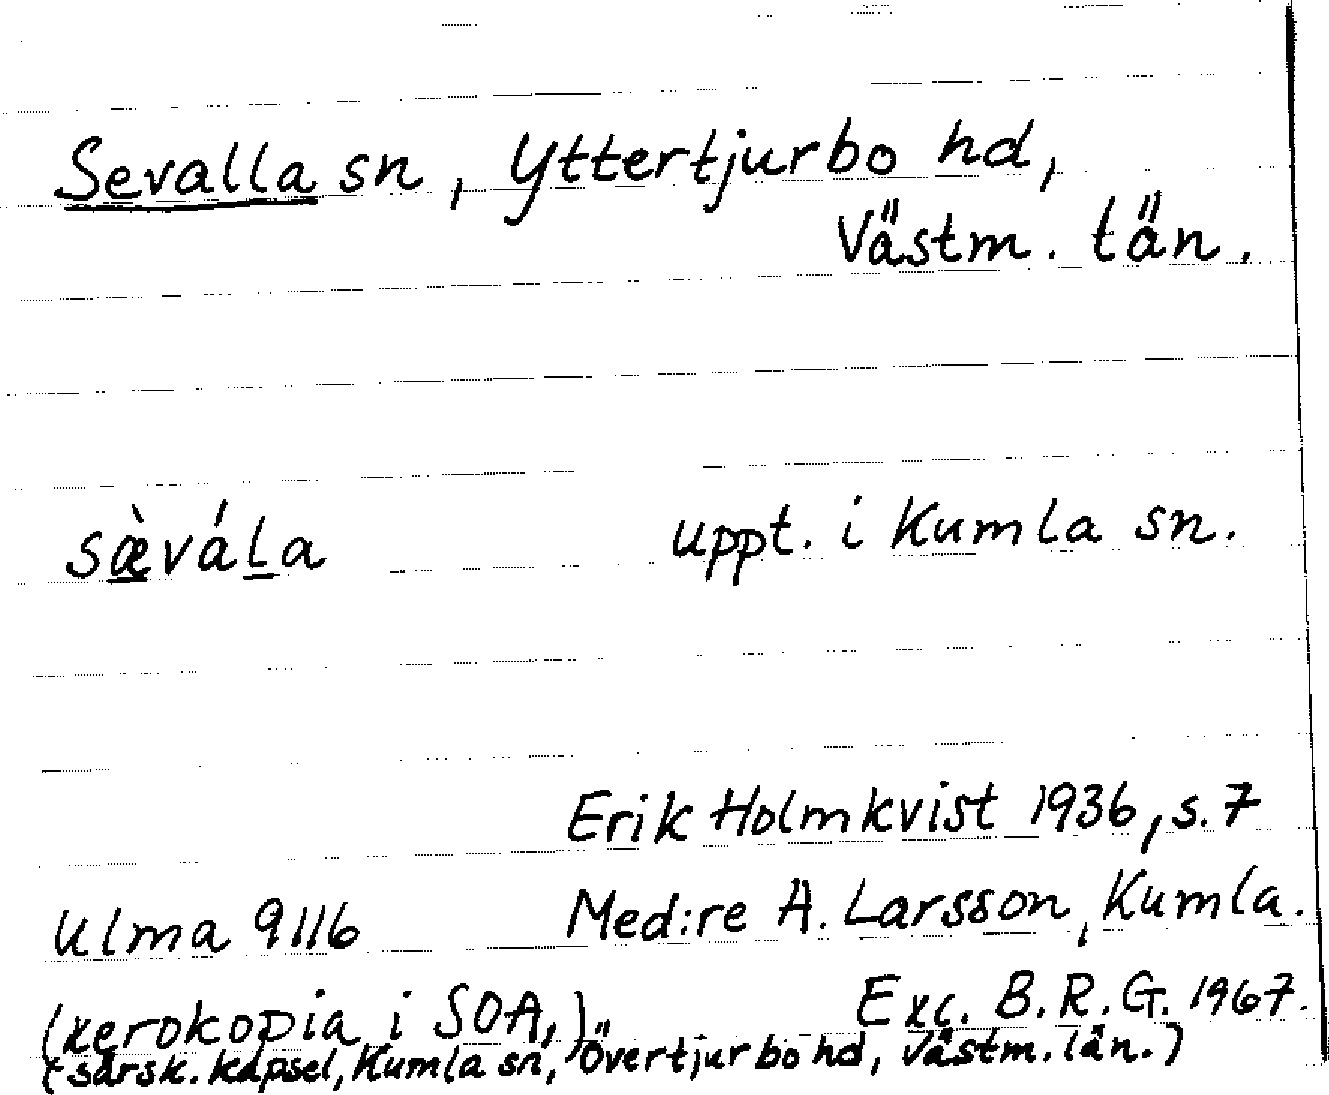 Sevalla sn, Yttertjurbo hd,
Västm. län.
sæ̀vála uppt. i Kumla sn.
Erik Holmkvist 1936, s. 7
Ulma 9116 Med:re A. Larsson, Kumla.
(xerokopia i SOA,) Exc. B.R.G. 1967.
(särsk. kapsel, Kumla sn, Övertjurbo hd, Västm. län.)